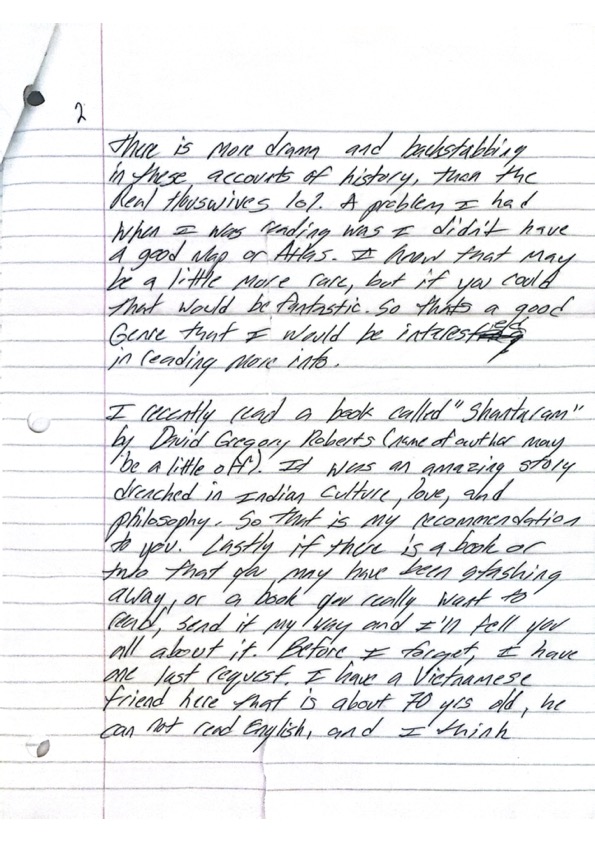 2
There is more drama and backstabbing
in these accounts of history, than the
Real Houswives lol. A problem I had
when I was reading was I didn't have
a good Map or Atlas. I know that may
be a little more rare, but if you could
that would be fantastic. So thats a good
Genre that I would be interested
in reading more into.
I recently read a book called "Shantaram"
by David Gregory Roberts (name of author may
be a little off). It was an amazing story
drenched in Indian Culture, love, and
philosophy. So that is my recommendation
to you. Lastly if there is a book or
two that you may have been stashing
away, or a book you really want to
read, send it my way and I'll tell you
all about it. Before I forget, I have
one last request. I have a Vietnamese
friend here that is about 70 yrs old, he
can not read English, and I think